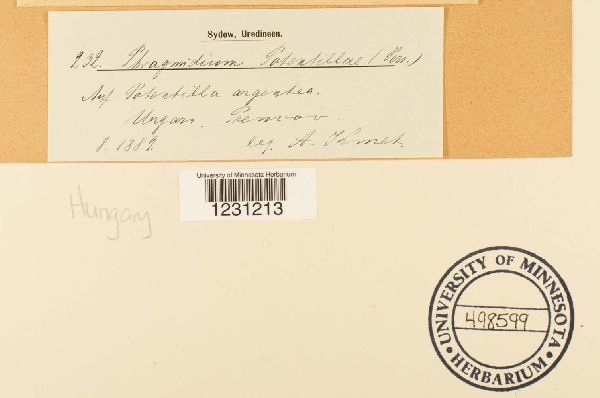 Sydow, Uredineen.
232. Phragmidium Potentillae (Pers.)
Auf Potentilla argentea.
Ungarn. Prencov.
8. 1889. leg. A. Kmet.
University of Minnesota Herbarium
1231213
Hungary
UNIVERSITY OF MINNESOTA
498599
• HERBARIUM •